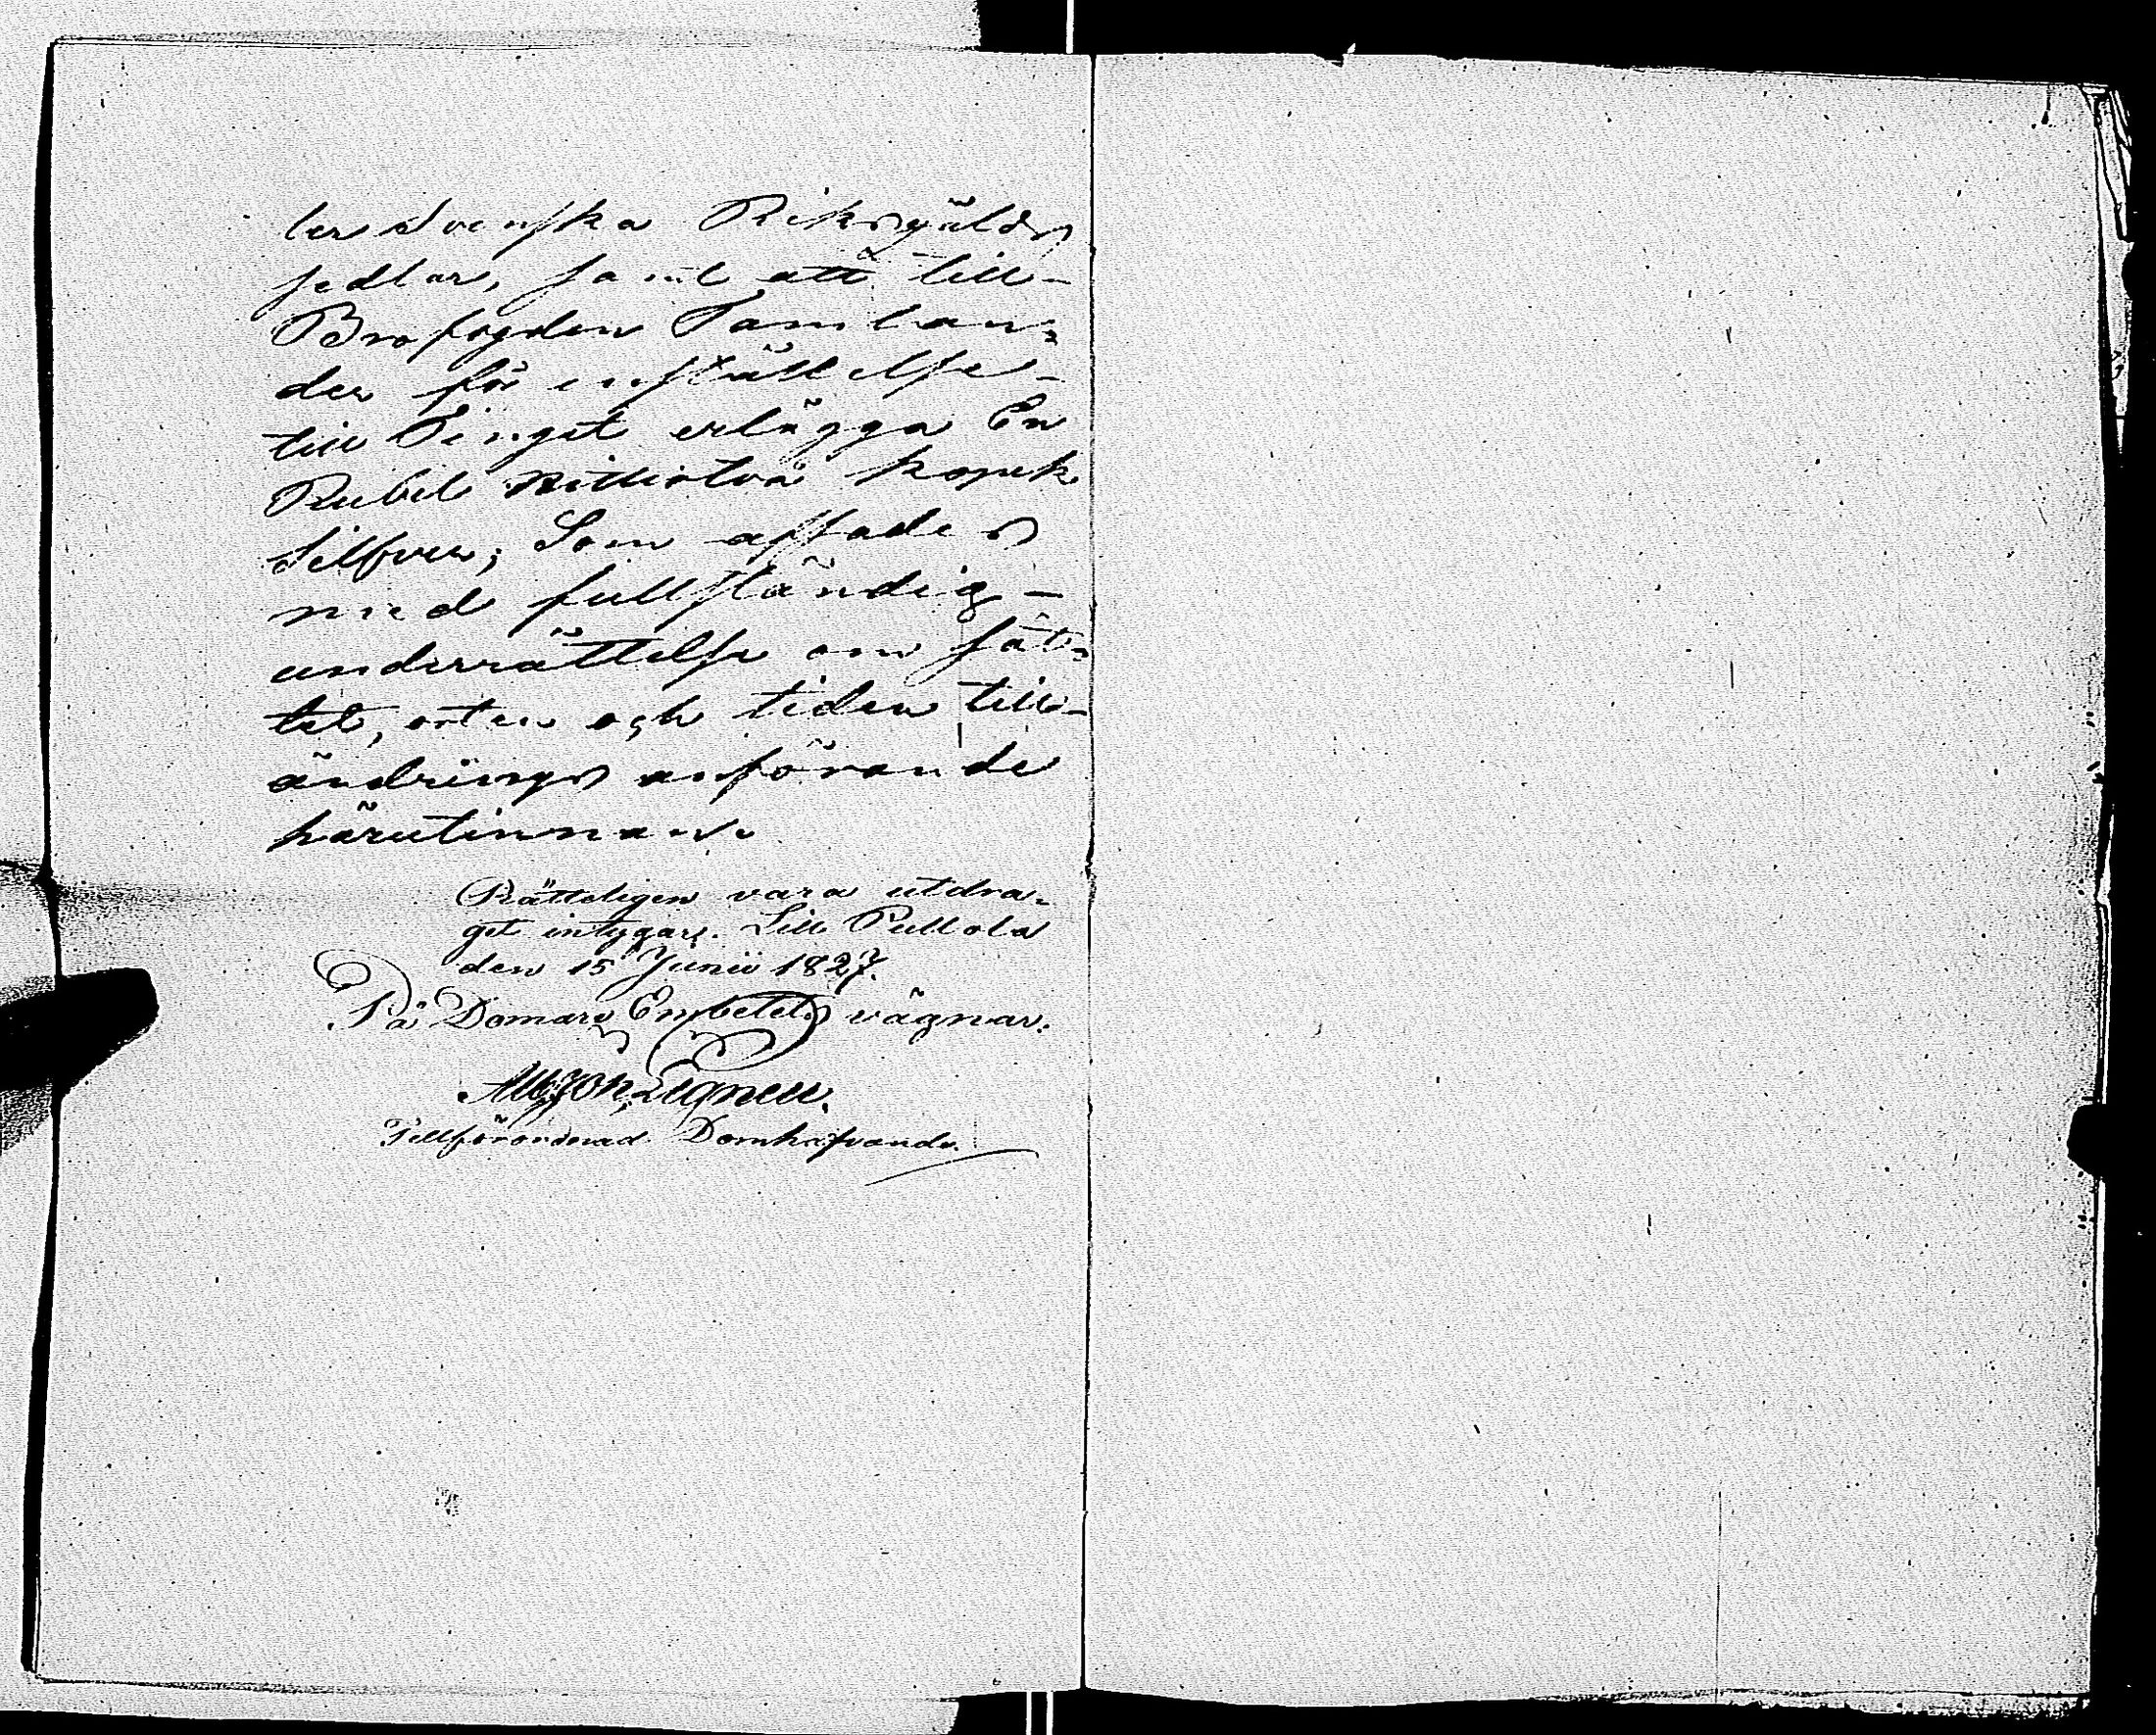 ler Svenska Riksgälds
sedlar, samt att till
Brofogden Tamlan=
der för inställelse
till Tinget erlägga En
Rubel nittiotvå kopek
Silfver; Som afsades
med fullständig
underrättelse om sät=
tet, orten och tiden till
ändrings anförande
härutinnan.
Rätteligen vara utdra=
get intygar. Lill Pellola
den 15 Junii 1827.
På Domare Embetets vägnar.
Tillförordnad Domhafvande.